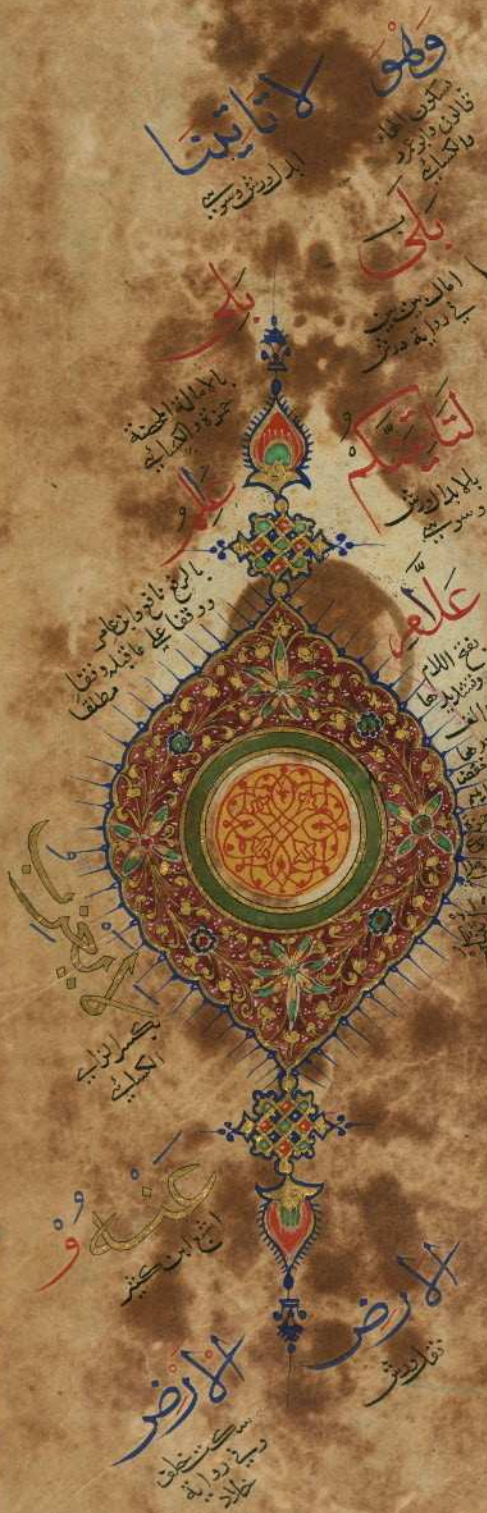 وَهْوَ
بسكون الهاء
قالون وابو عمرو
والكسائي
لا تاتينا
ابدل ورش وسوسي
بَلَى
امالة بين بين
في رواية ورش
بلى
بالامالة المحضة
حمزة والكسائي
لَتَاتِيَنَّكُمُو
بالابدال ورش
وسوسي
عَلِمُ
بالرفع نافع وابن عامر
ووقفا على ما قبله وقفا
مطلقا
عَلَّامِ
بفتح اللام
وتشديدها
والف
بعدها
لا يعزِب
بكسر الزاي
الكسائي
عَنْهُ وْ
اشبع ابن كثير
الارض
نقل ورش
الارض
سكت خلف
وفي رواية
خلاد